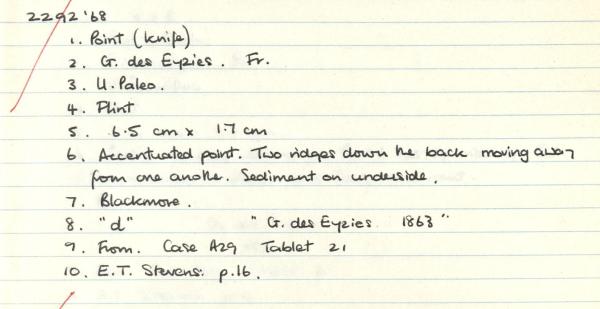 2292 '68
1. Point (knife)
2. G. des Eyzies. Fr.
3. U. Paleo.
4. Flint
5. 6.5 cm x 1.7 cm
6. Accentuated point. Two ridges down the back moving away
from one anothe. Sediment on underside.
7. Blackmore.
8. "d" "G. des Eyzies 1863"
9. From. Case A29 Tablet 21
10. E.T. Stevens: p.16.